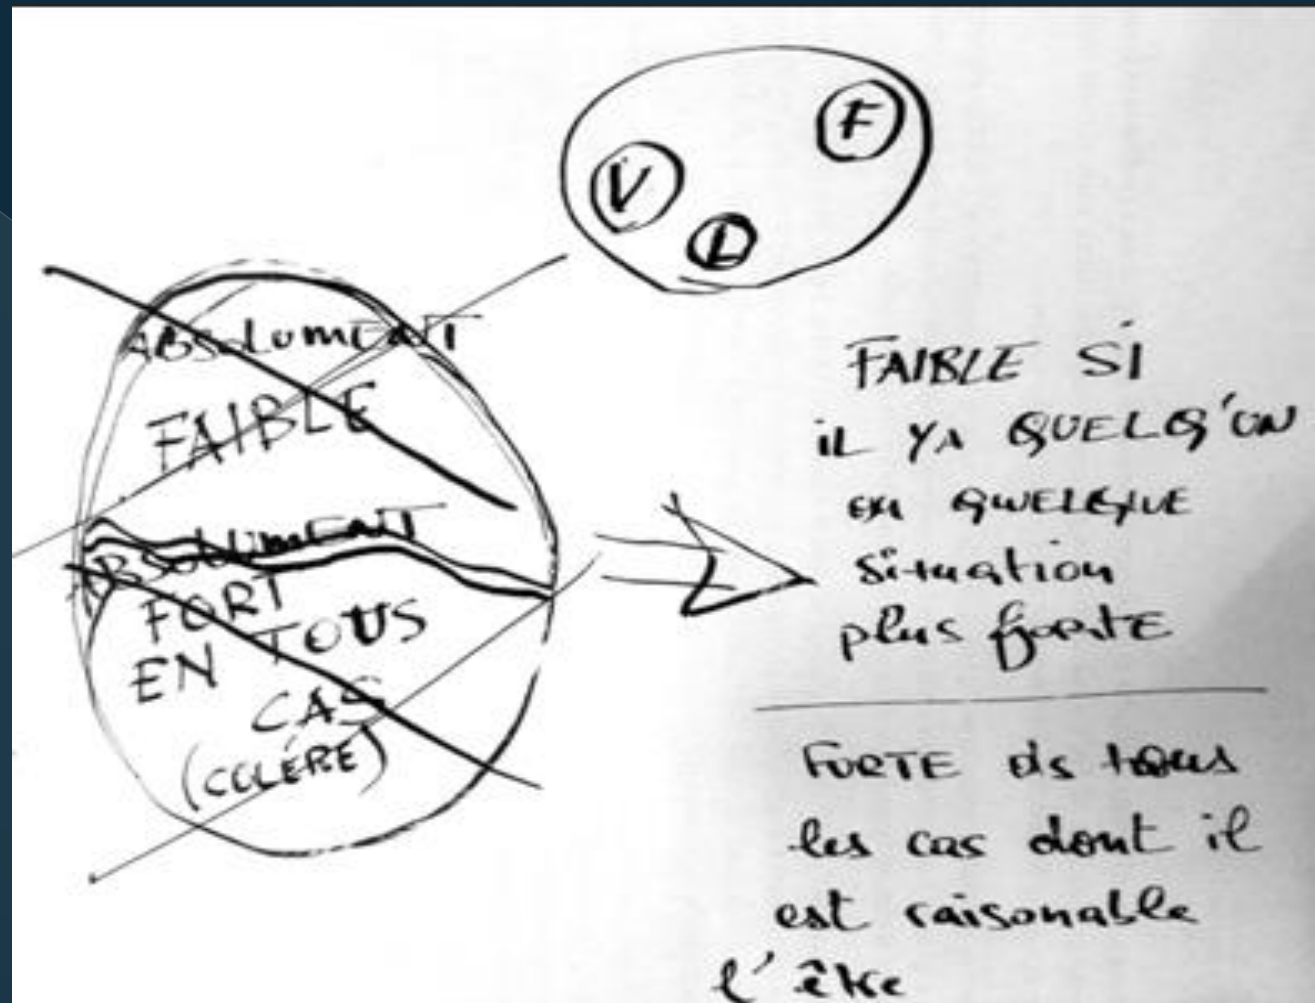 F
V
L
ABSOLUMENT
FAIBLE
ABSOLUMENT
FORT
EN TOUS
CAS
(COLÈRE)
FAIBLE SI
iL YA QUELQ'UN
EN QUELQUE
situation
plus forte
FORTE ds tous
les cas dont il
est raisonable
l'être